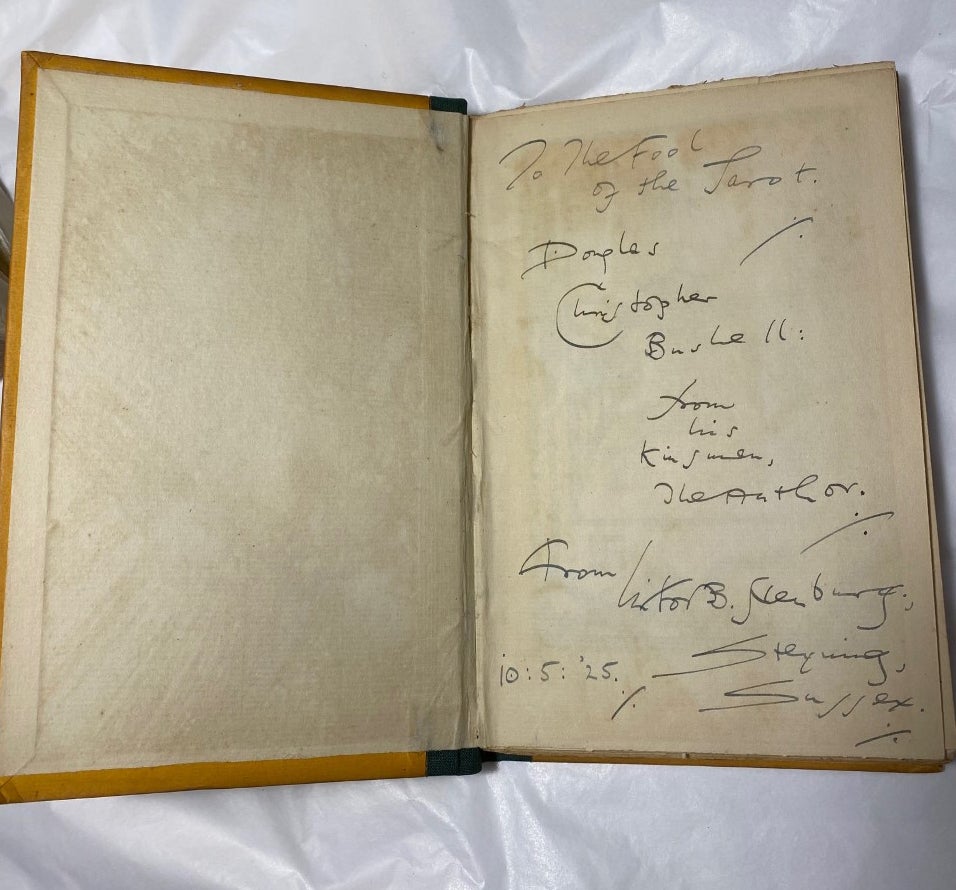 To The Fool
of the Tarot.
Douglas
Christopher
Bushell:
from
his
Kinsman,
The Author.
From Victor B. Neuburg:,
Steyning,
Sussex.
10:5:'25.